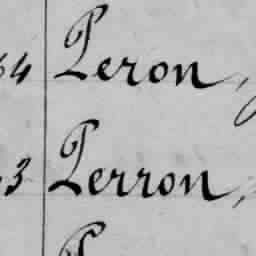 64 Peron,
3 Perron,